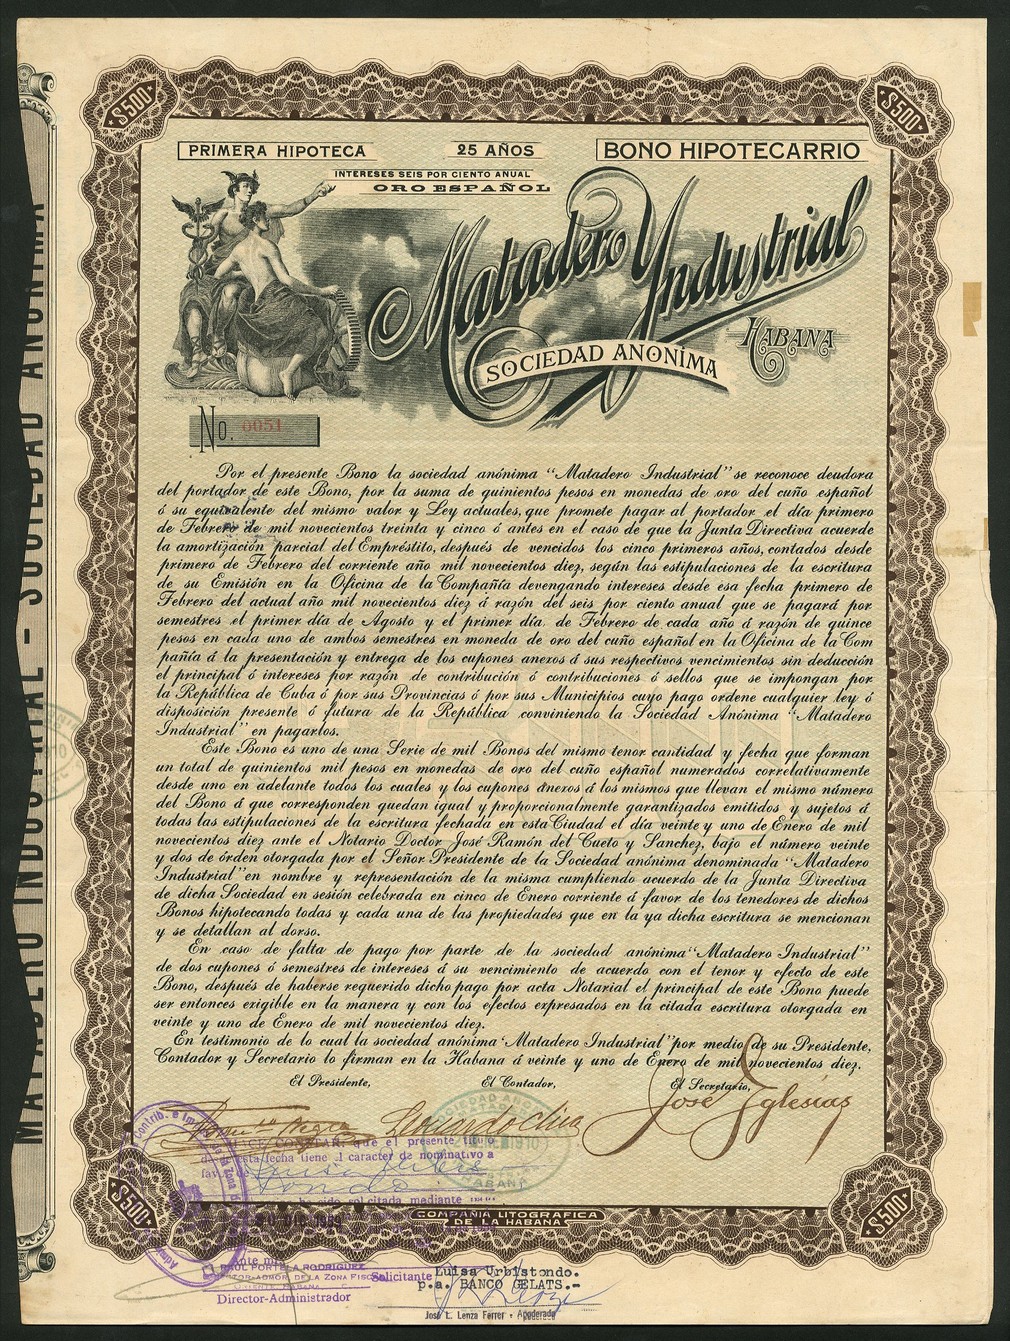 $500
$500
PRIMERA HIPOTECA
25 AÑOS
BONO HIPOTECARRIO
INTERESES SEIS POR CIENTO ANUAL
ORO ESPAÑOL
Matadero Yndustrial
SOCIEDAD ANONÍMA
HABANA
No. 0051
Por el presente Bono la sociedad anónima “Matadero Industrial” se reconoce deudora
del portador de este Bono, por la suma de quinientos pesos en monedas de oro del cuño español
ó su equivalente del mismo valor y Ley actuales, que promete pagar al portador el día primero
de Febrero de mil novecientos treinta y cinco ó antes en el caso de que la Junta Directiva acuerde
la amortización parcial del Empréstito, después de vencidos los cinco primeros años, contados desde
primero de Febrero del corriente año mil novecientos diez, según las estipulaciones de la escritura
de su Emisión en la Oficina de la Compañía devengando intereses desde esa fecha primero de
Febrero del actual año mil novecientos diez á razón del seis por ciento anual que se pagará por
semestres el primer día de Agosto y el primer día. de Febrero de cada año á razón de quince
pesos en cada uno de ambos semestres en moneda de oro del cuño español en la Oficina de la Com
pañía á la presentación y entrega de los cupones anexos á sus respectivos vencimientos sin deducción
el principal ó intereses por razón de contribución ó contribuciones ó sellos que se impongan por
la República de Cuba ó por sus Provincias ó por sus Municipios cuyo pago ordene cualquier ley ó
disposición presente ó futura de la República conviniendo la Sociedad Anónima “Matadero
Industrial” en pagarlos.
Este Bono es uno de una Serie de mil Bonos del mismo tenor cantidad y fecha que forman
un total de quinientos mil pesos en monedas de oro del cuño español numerados correlativamente
desde uno en adelante todos los cuales y los cupones anexos á los mismos que llevan el mismo número
del Bono á que corresponden quedan igual y proporcionalmente garantizados emitidos y sujetos á
todas las estipulaciones de la escritura fechada en esta Ciudad el día veinte y uno de Enero de mil
novecientos diez ante el Notario Doctor José Ramón del Cueto y Sanchez, bajo el número veinte
y dos de órden otorgada por el Señor Presidente de la Sociedad anónima denominada “Matadero
Industrial” en nombre y representación de la misma cumpliendo acuerdo de la Junta Directiva
de dicha Sociedad en sesión celebrada en cinco de Enero corriente á favor de los tenedores de dichos
Bonos hipotecando todas y cada una de las propiedades que en la ya dicha escritura se mencionan
y se detallan al dorso.
En caso de falta de pago por parte de la sociedad anónima “Matadero Industrial”
de dos cupones ó semestres de intereses á su vencimiento de acuerdo con el tenor y efecto de este
Bono, después de haberse requerido dicho pago por acta Notarial el principal de este Bono puede
ser entonces exigible en la manera y con los efectos expresados en la citada escritura otorgada en
veinte y uno de Enero de mil novecientos diez.
En testimonio de lo cual la sociedad anónima “Matadero Industrial” por medio de su Presidente,
Contador y Secretario lo firman en la Habana á veinte y uno de Enero de mil novecientos diez.
El Presidente,
El Contador,
El Secretario,
José Yglesias
HACE CONSTAR: que el presente titulo
esta fecha tiene el caracter de nominativo a
ha sido solicitada mediante
$500
COMPAÑIA LITOGRAFICA
DE LA HABANA
$500
RAUL PORTELA RODRIGUEZ
DIRECTOR-ADMOR. DE LA ZONA FISCAL
Director-Administrador
Solicitante
Luisa Urbistondo.
p.a. BANCO GELATS.-
José L. Lenza Ferrer - Apoderado
MATADERO INDUSTRIAL - SOCIEDAD ANONIMA